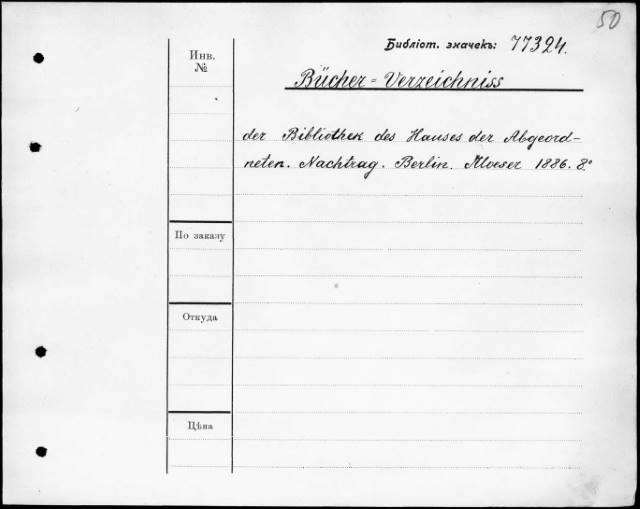 50
Библіот. значекъ: 77324.
Инв.
№
Bücher = Verzeichniss
der Bibliothek des Hauses der Abgeord-
neten. Nachtrag. Berlin. Moeser 1886. 8°
По заказу
Откуда
Цѣна